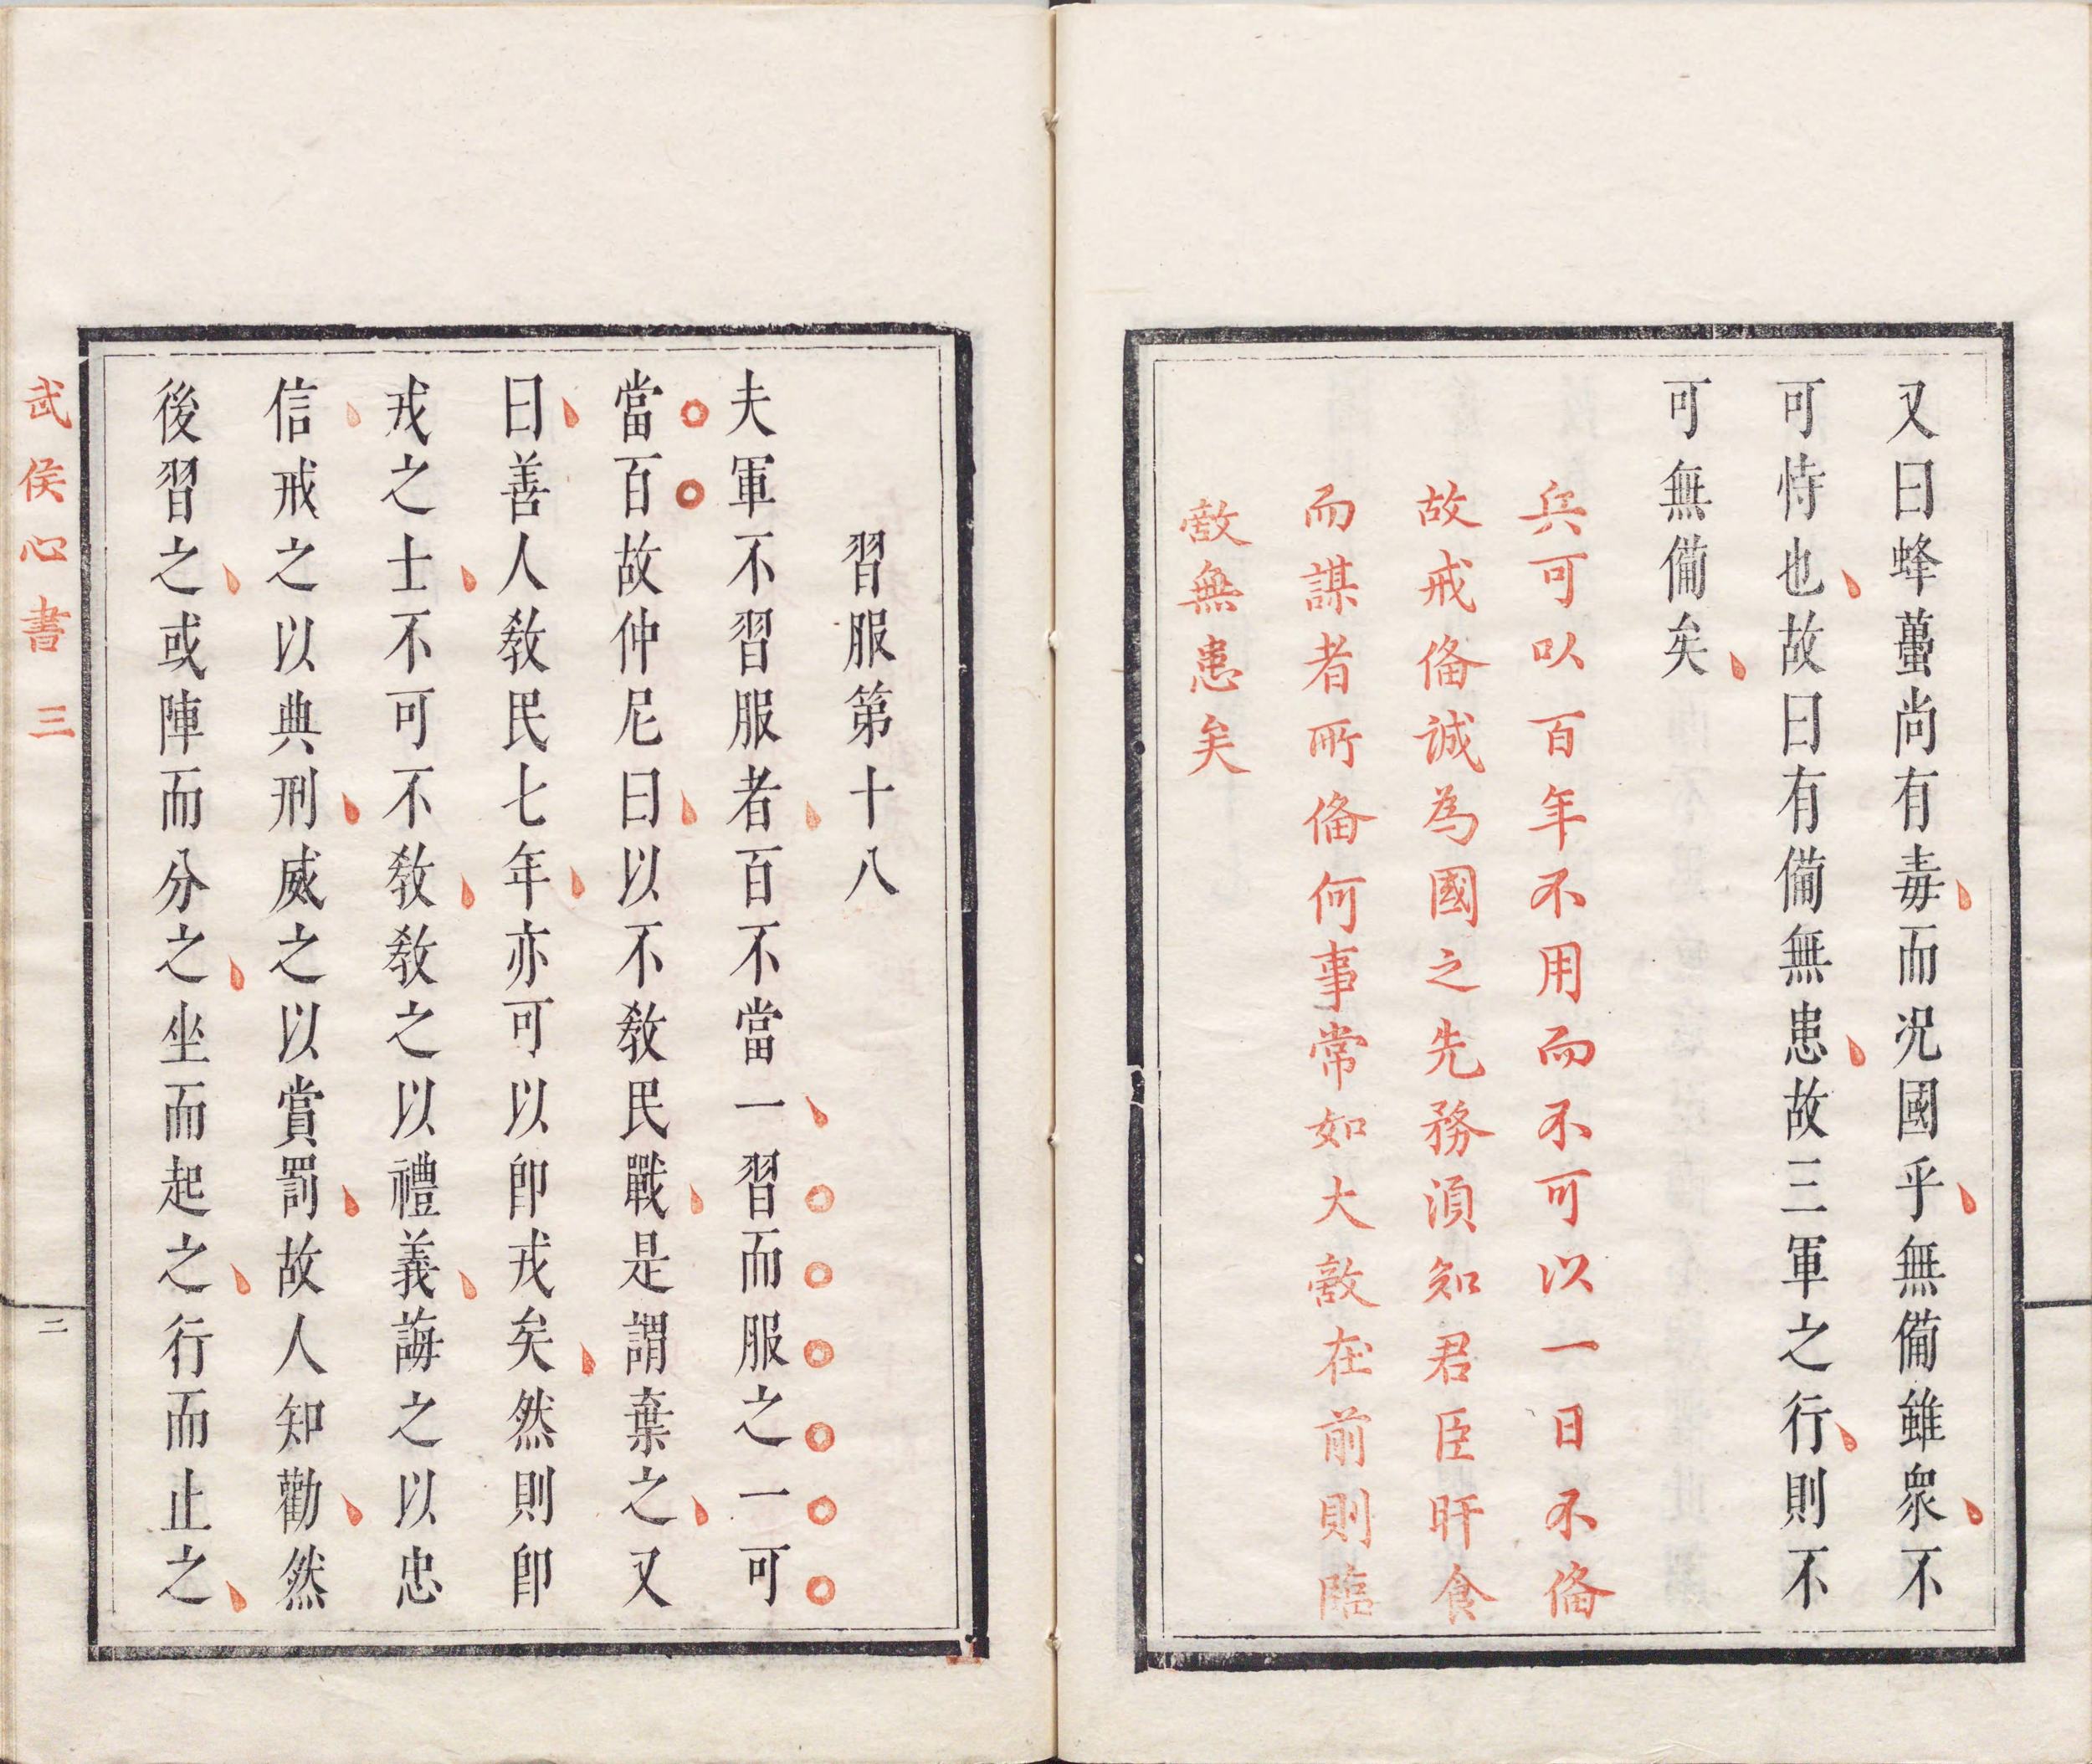 又曰蜂蠆尚有毒而况國乎無備雖衆不
可恃也故曰有備無患故三軍之行則不
可無備矣
兵可以百年不用而不可以一日不俻
故戒俻誠為國之先務湏知君臣旰食
而謀者所俻何事常如大敵在前則臨
敵無患矣
習服第十八
夫軍不習服者百不當一習而服之一可
當百故仲尼曰以不教民戰是謂棄之又
曰善人教民七年亦可以卽戎矣然則卽
戎之士不可不教教之以禮義誨之以忠
信戒之以典刑威之以賞罰故人知勸然
後習之或陣而分之坐而起之行而止之
武侯心書 三
二